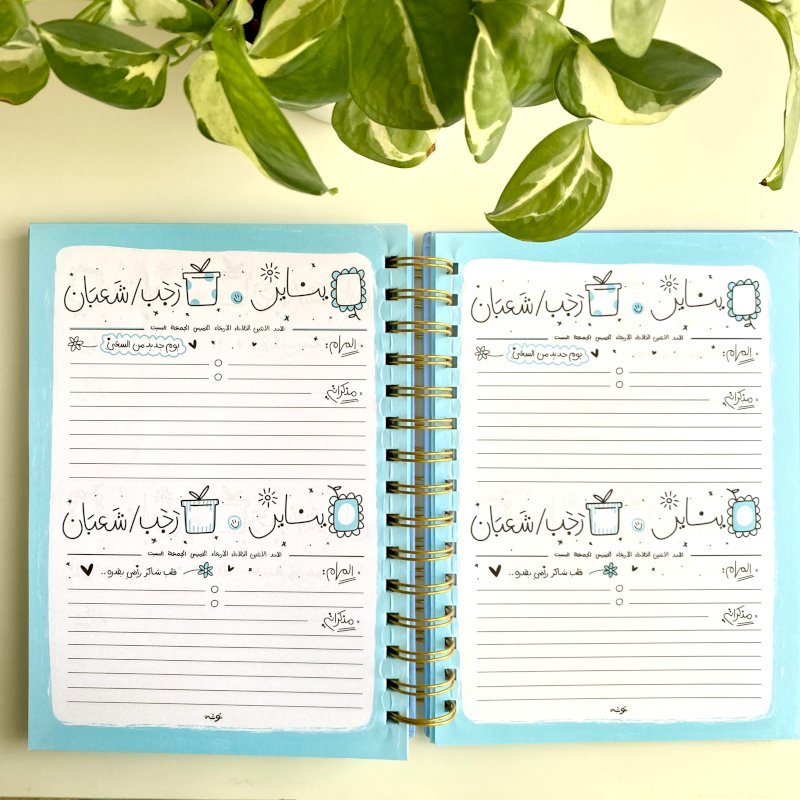 يناير رَجَب/شَعبَان
الأحد الاثنين الثلاثاء الأربعاء الخميس الجمعة السبت
المهام: يوم جديد من السعي
مذكراتي:
يناير رَجَب/شَعبَان
الأحد الاثنين الثلاثاء الأربعاء الخميس الجمعة السبت
المهام: قلب شاكر راضي بقدرو..
مذكراتي:
يناير رَجَب/شَعبَان
الأحد الاثنين الثلاثاء الأربعاء الخميس الجمعة السبت
المهام: يوم جديد من السعي
مذكراتي:
يناير رَجَب/شَعبَان
الأحد الاثنين الثلاثاء الأربعاء الخميس الجمعة السبت
المهام: قلب شاكر راضي بقدرو..
مذكراتي: